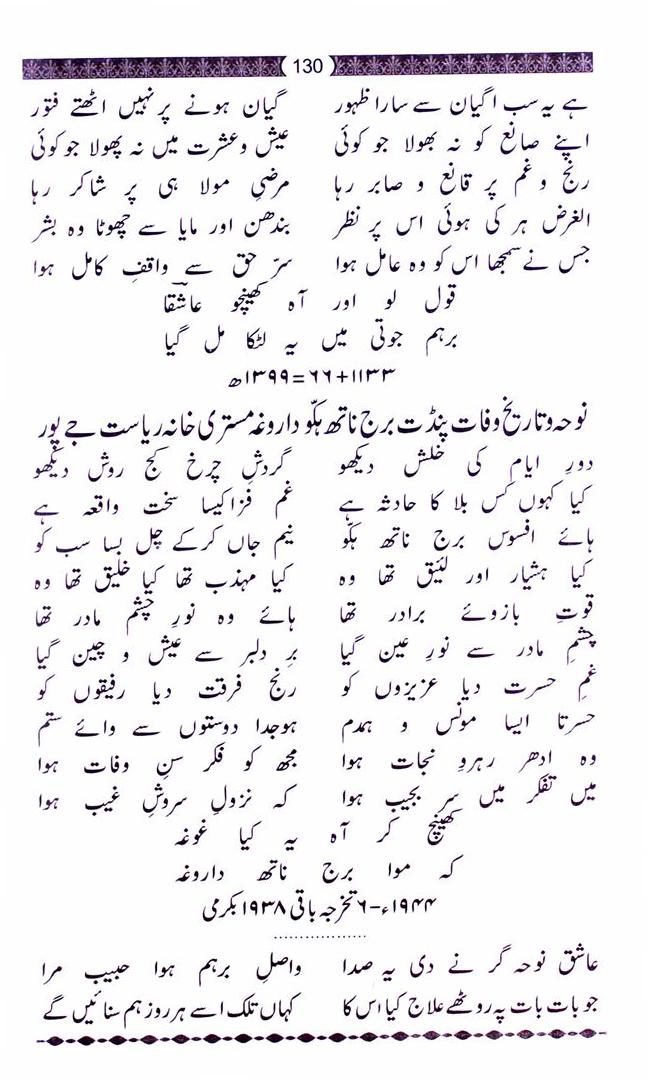 130
ہے یہ سب اگیان سے سارا ظہور گیان ہونے پر نہیں اٹھتے فتور
اپنے صانع کو نہ بھولا جو کوئی عیش و عشرت میں نہ پھولا جو کوئی
رنج و غم پر قانع و صابر رہا مرضیِ مولا ہی پر شاکر رہا
الغرض ہر کی ہوئی اس پر نظر بندھن اور مایا سے چھوٹا وہ بشر
جس نے سمجھا اس کو وہ عامل ہوا سرّ حق سے واقفِ کامل ہوا
قول لو اور آہ کھینچو عاشقا
برہم جوتی میں یہ لٹکا مل گیا
۱۱۳۳+۶۶=۱۳۹۹ھ
نوحہ و تاریخ وفات پنڈت برج ناتھ ہکّو داروغہ مستری خانہ ریاست جے پور
دورِ ایام کی خلش دیکھو گردشِ چرخ کج روش دیکھو
کیا کہوں کس بلا کا حادثہ ہے غم فزا کیسا سخت واقعہ ہے
ہائے افسوس برج ناتھ ہکّو نیم جاں کرکے چل بسا سب کو
کیا ہشیار اور لئیق تھا وہ کیا مہذب تھا کیا خلیق تھا وہ
قوتِ بازوئے برادر تھا ہائے وہ نورِ چشمِ مادر تھا
چشمِ مادر سے نورِ عین گیا برِ دلبر سے عیش و چین گیا
غمِ حسرت دیا عزیزوں کو رنج فرقت دیا رفیقوں کو
حسرتا ایسا مونس و ہمدم ہوجدا دوستوں سے وائے ستم
وہ ادھر رہروِ نجات ہوا مجھ کو فکر سنِ وفات ہوا
میں تفکر میں سر بجیب ہوا کہ نزولِ سروشِ غیب ہوا
کھینچ کر آہ یہ کیا غوغہ
کہ موا برج ناتھ داروغہ
۱۹۴۴ء-۶ تخرجہ باقی ۱۹۳۸ بکرمی
عاشق نوحہ گر نے دی یہ صدا واصلِ برہم ہوا حبیب مرا
جو بات بات پہ روٹھے علاج کیا اس کا کہاں تلک اسے ہر روز ہم سنائیں گے